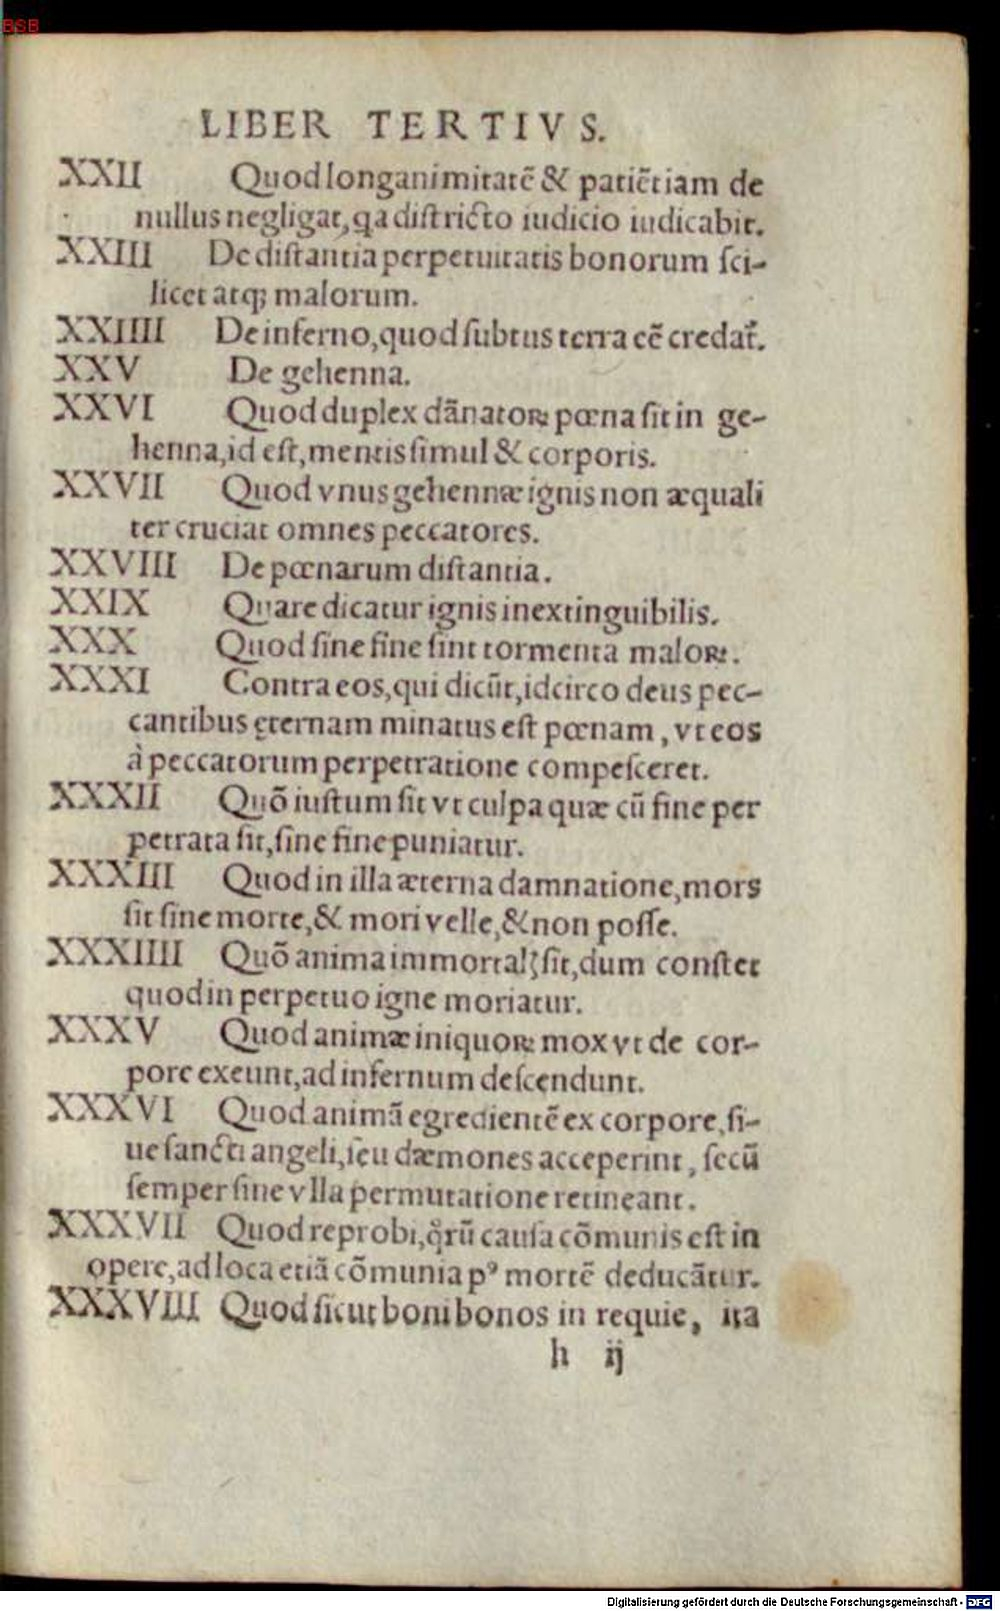 BSB
LIBER TERTIVS.
XXII Quod longanimitatē & patiētiam de
nullus negligat, qa districto iudicio iudicabit.
XXIII De distantia perpetuitatis bonorum sci-
licet atq; malorum.
XXIIII De inferno, quod subtus terra eē credat᷑.
XXV De gehenna.
XXVI Quod duplex dānatoꝝ pœna sit in ge-
henna, id est, mentis simul & corporis.
XXVII Quod vnus gehennæ ignis non æquali
ter cruciat omnes peccatores.
XXVIII De pœnarum distantia.
XXIX Quare dicatur ignis inextinguibilis.
XXX Quod sine fine sint tormenta maloꝝ.
XXXI Contra eos, qui dicūt, idcirco deus pec-
cantibus ęternam minatus est pœnam, vt eos
à peccatorum perpetratione compesceret.
XXXII Quō iustum sit vt culpa quæ cū fine per
petrata sit, sine fine puniatur.
XXXIII Quod in illa æterna damnatione, mors
sit sine morte, & mori velle, & non posse.
XXXIIII Quō anima immortalꝭ sit, dum constet
quod in perpetuo igne moriatur.
XXXV Quod animæ iniquoꝝ mox vt de cor-
pore exeunt, ad infernum descendunt.
XXXVI Quod animā egredientē ex corpore, si-
ue sancti angeli, seu dæmones acceperint, secū
semper sine vlla permutatione retineant.
XXXVII Quod reprobi, qͦrū causa cōmunis est in
opere, ad loca etiā cōmunia pꝰ mortē deducātur.
XXXVIII Quod sicut boni bonos in requie, ita
h ij
Digitalisierung gefördert durch die Deutsche Forschungsgemeinschaft - DFG